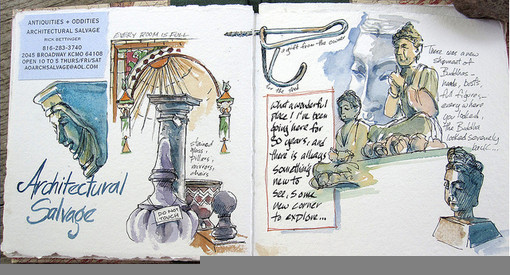 ANTIQUITIES + ODDITIES
ARCHITECTURAL SALVAGE
RICK BETTINGER
816-283-3740
2045 BROADWAY KCMO 64108
OPEN 10 TO 5 THURS/FRI/SAT
ADARCHSALVAGE@AOL.COM
EVERY ROOM IS FULL
stained
glass,
pillars,
mirrors,
chairs
DO NOT
TOUCH
Architectural
Salvage
a gift from the owner
for the shed
What a wonderful
place! I've been
going here for
30 years, and
there is always
something
new to
see, some
new corner
to explore...
There was a new
shipment of
Buddhas -
heads, busts,
full figures,
everywhere
you looked,
the Buddha
looked serenely
back...